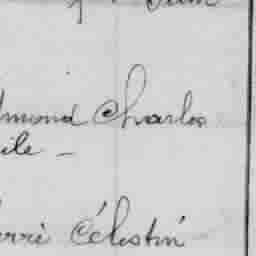 mond Charles
ile -
erri Célestin